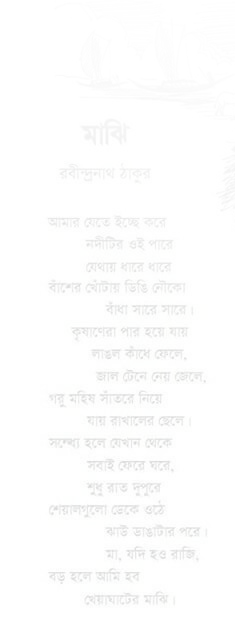 মাঝি
রবীন্দ্রনাথ ঠাকুর
আমার যেতে ইচ্ছে করে
নদীটির ওই পারে
যেথায় ধারে ধারে
বাঁশের খোঁটায় ডিঙি নৌকো
বাঁধা সারে সারে।
কৃষাণেরা পার হয়ে যায়
লাঙল কাঁধে ফেলে,
জাল টেনে নেয় জেলে,
গরু মহিষ সাঁতরে নিয়ে
যায় রাখালের ছেলে।
সন্ধ্যে হলে যেখান থেকে
সবাই ফেরে ঘরে,
শুধু রাত দুপুরে
শেয়ালগুলো ডেকে ওঠে
ঝাউ ডাঙাটার পরে।
মা, যদি হও রাজি,
বড় হলে আমি হব
খেয়াঘাটের মাঝি।